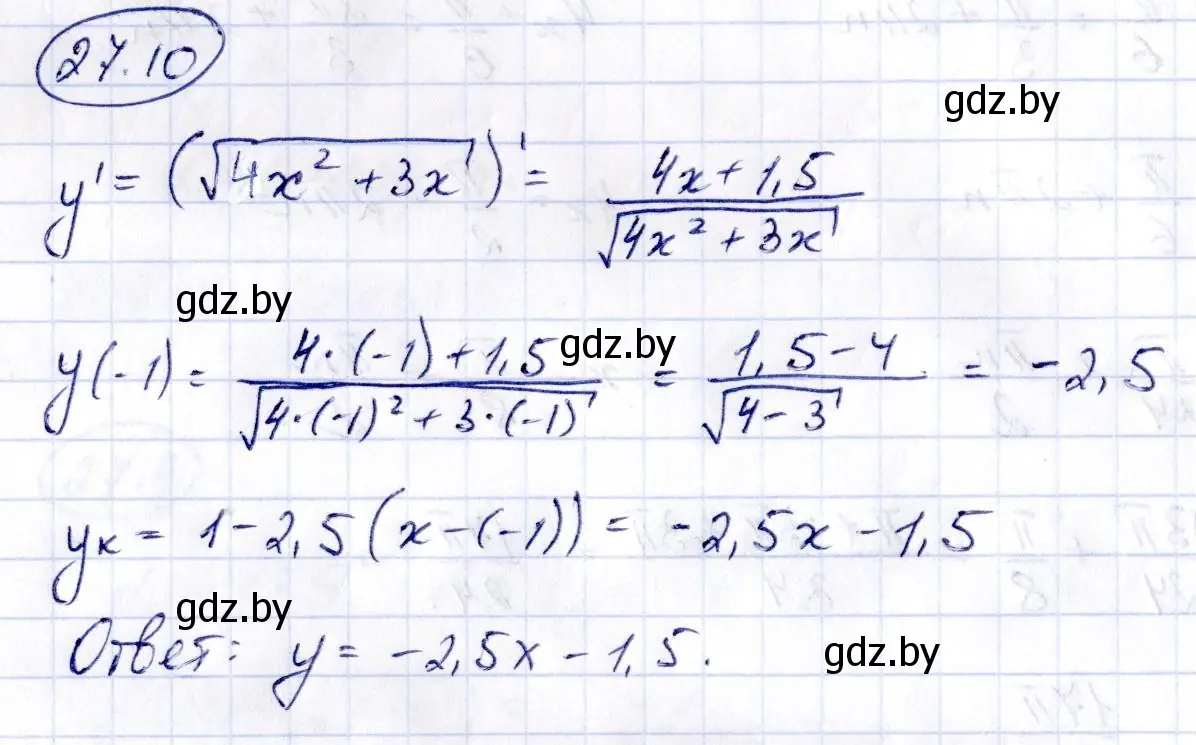 27.10
gdz.by
y' = (√(4x² + 3x))' = (4x + 1,5)/√(4x² + 3x)
gdz.by
gdz.by
y(-1) = (4·(-1) + 1,5)/√(4·(-1)² + 3·(-1)) = (1,5 - 4)/√(4 - 3) = -2,5
yк = 1 - 2,5(x - (-1)) = -2,5x - 1,5
gdz.by
Ответ: y = -2,5x - 1,5.
gdz.by